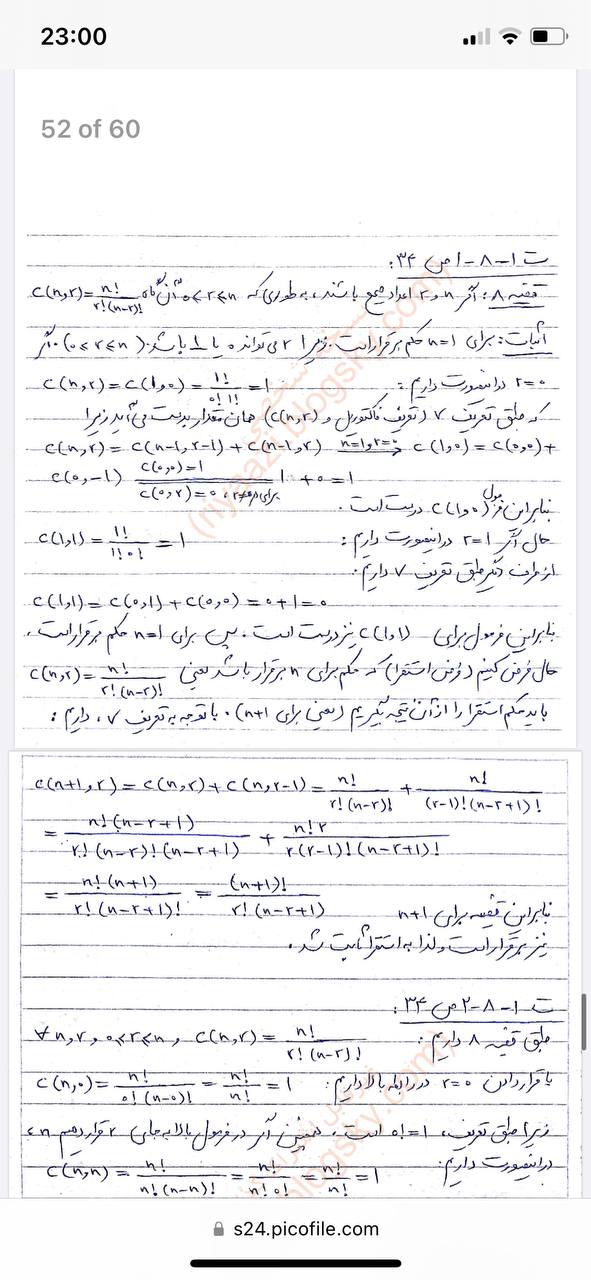 23:00
52 of 60
ت ۱-۸-۱ ص ۳۴:
قضیه ۸: اگر n و r اعداد صحیح باشند، به طوری که 0≤r≤n آن‌گاه C(n,r)=n!/r!(n-r)!
اثبات: برای n=1 حکم برقرار است. زیرا r می‌تواند ۰ یا 1 باشد. (0≤r≤n). اگر
r=0 در اینصورت داریم: C(n,r)=C(1,0)=1!/0!1!=1
که طبق تعریف ۷ (تعریف فاکتوریل و C(n,r)) همان مقدار بدست می‌آید زیرا
C(n,r)=C(n-1,r-1)+C(n-1,r) n=1,r=0 ⟹ C(1,0)=C(0,0)+
C(0,-1) C(0,0)=1 / C(0,r)=0, r≠0 برای 1+0=1
بنابراین فرمول C(1,0) درست است.
حال اگر r=1 در اینصورت داریم: C(1,1)=1!/1!0!=1
از طرف دیگر طبق تعریف ۷ داریم:
C(1,1)=C(0,1)+C(0,0)=0+1=0
بنابراین فرمول برای C(1,1) نیز درست است. پس برای n=1 حکم برقرار است.
حال فرض کنیم (فرض استقرا) که حکم برای n برقرار باشد یعنی C(n,r)=n!/r!(n-r)!
باید حکم استقرا را از آن نتیجه بگیریم (یعنی برای n+1). با توجه به تعریف ۷، داریم:
C(n+1,r)=C(n,r)+C(n,r-1)=n!/r!(n-r)! + n!/(r-1)!(n-r+1)!
=n!(n-r+1)/r!(n-r)!(n-r+1) + n!r/r(r-1)!(n-r+1)!
=n!(n+1)/r!(n-r+1)! = (n+1)!/r!(n-r+1) بنابراین قضیه برای n+1
نیز برقرار است و لذا به استقرا ثابت شد.
ت ۱-۸-۲ ص ۳۴:
طبق قضیه ۸ داریم: ∀n,r, 0≤r≤n, C(n,r)=n!/r!(n-r)!
با قرار دادن r=0 در رابطه بالا داریم: C(n,0)=n!/0!(n-0)!=n!/n!=1
زیرا طبق تعریف، 0!=1 است. همچنین اگر در فرمول بالا به جای r قرار دهیم n،
در اینصورت داریم: C(n,n)=n!/n!(n-n)!=n!/n!0!=n!/n!=1
s24.picofile.com